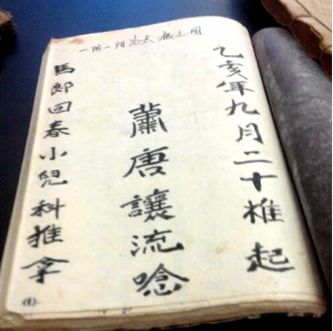 乙亥年九月二十推起
蕭唐讓流唸
馬郎回春小兒科推拿